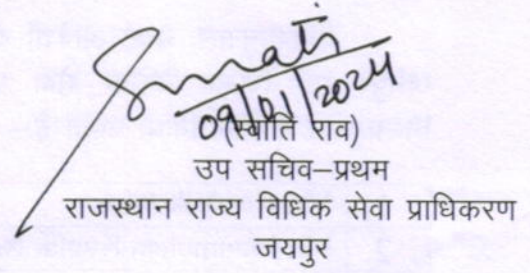 09/01/2024
(स्वाति राव)
उप सचिव–प्रथम
राजस्थान राज्य विधिक सेवा प्राधिकरण
जयपुर